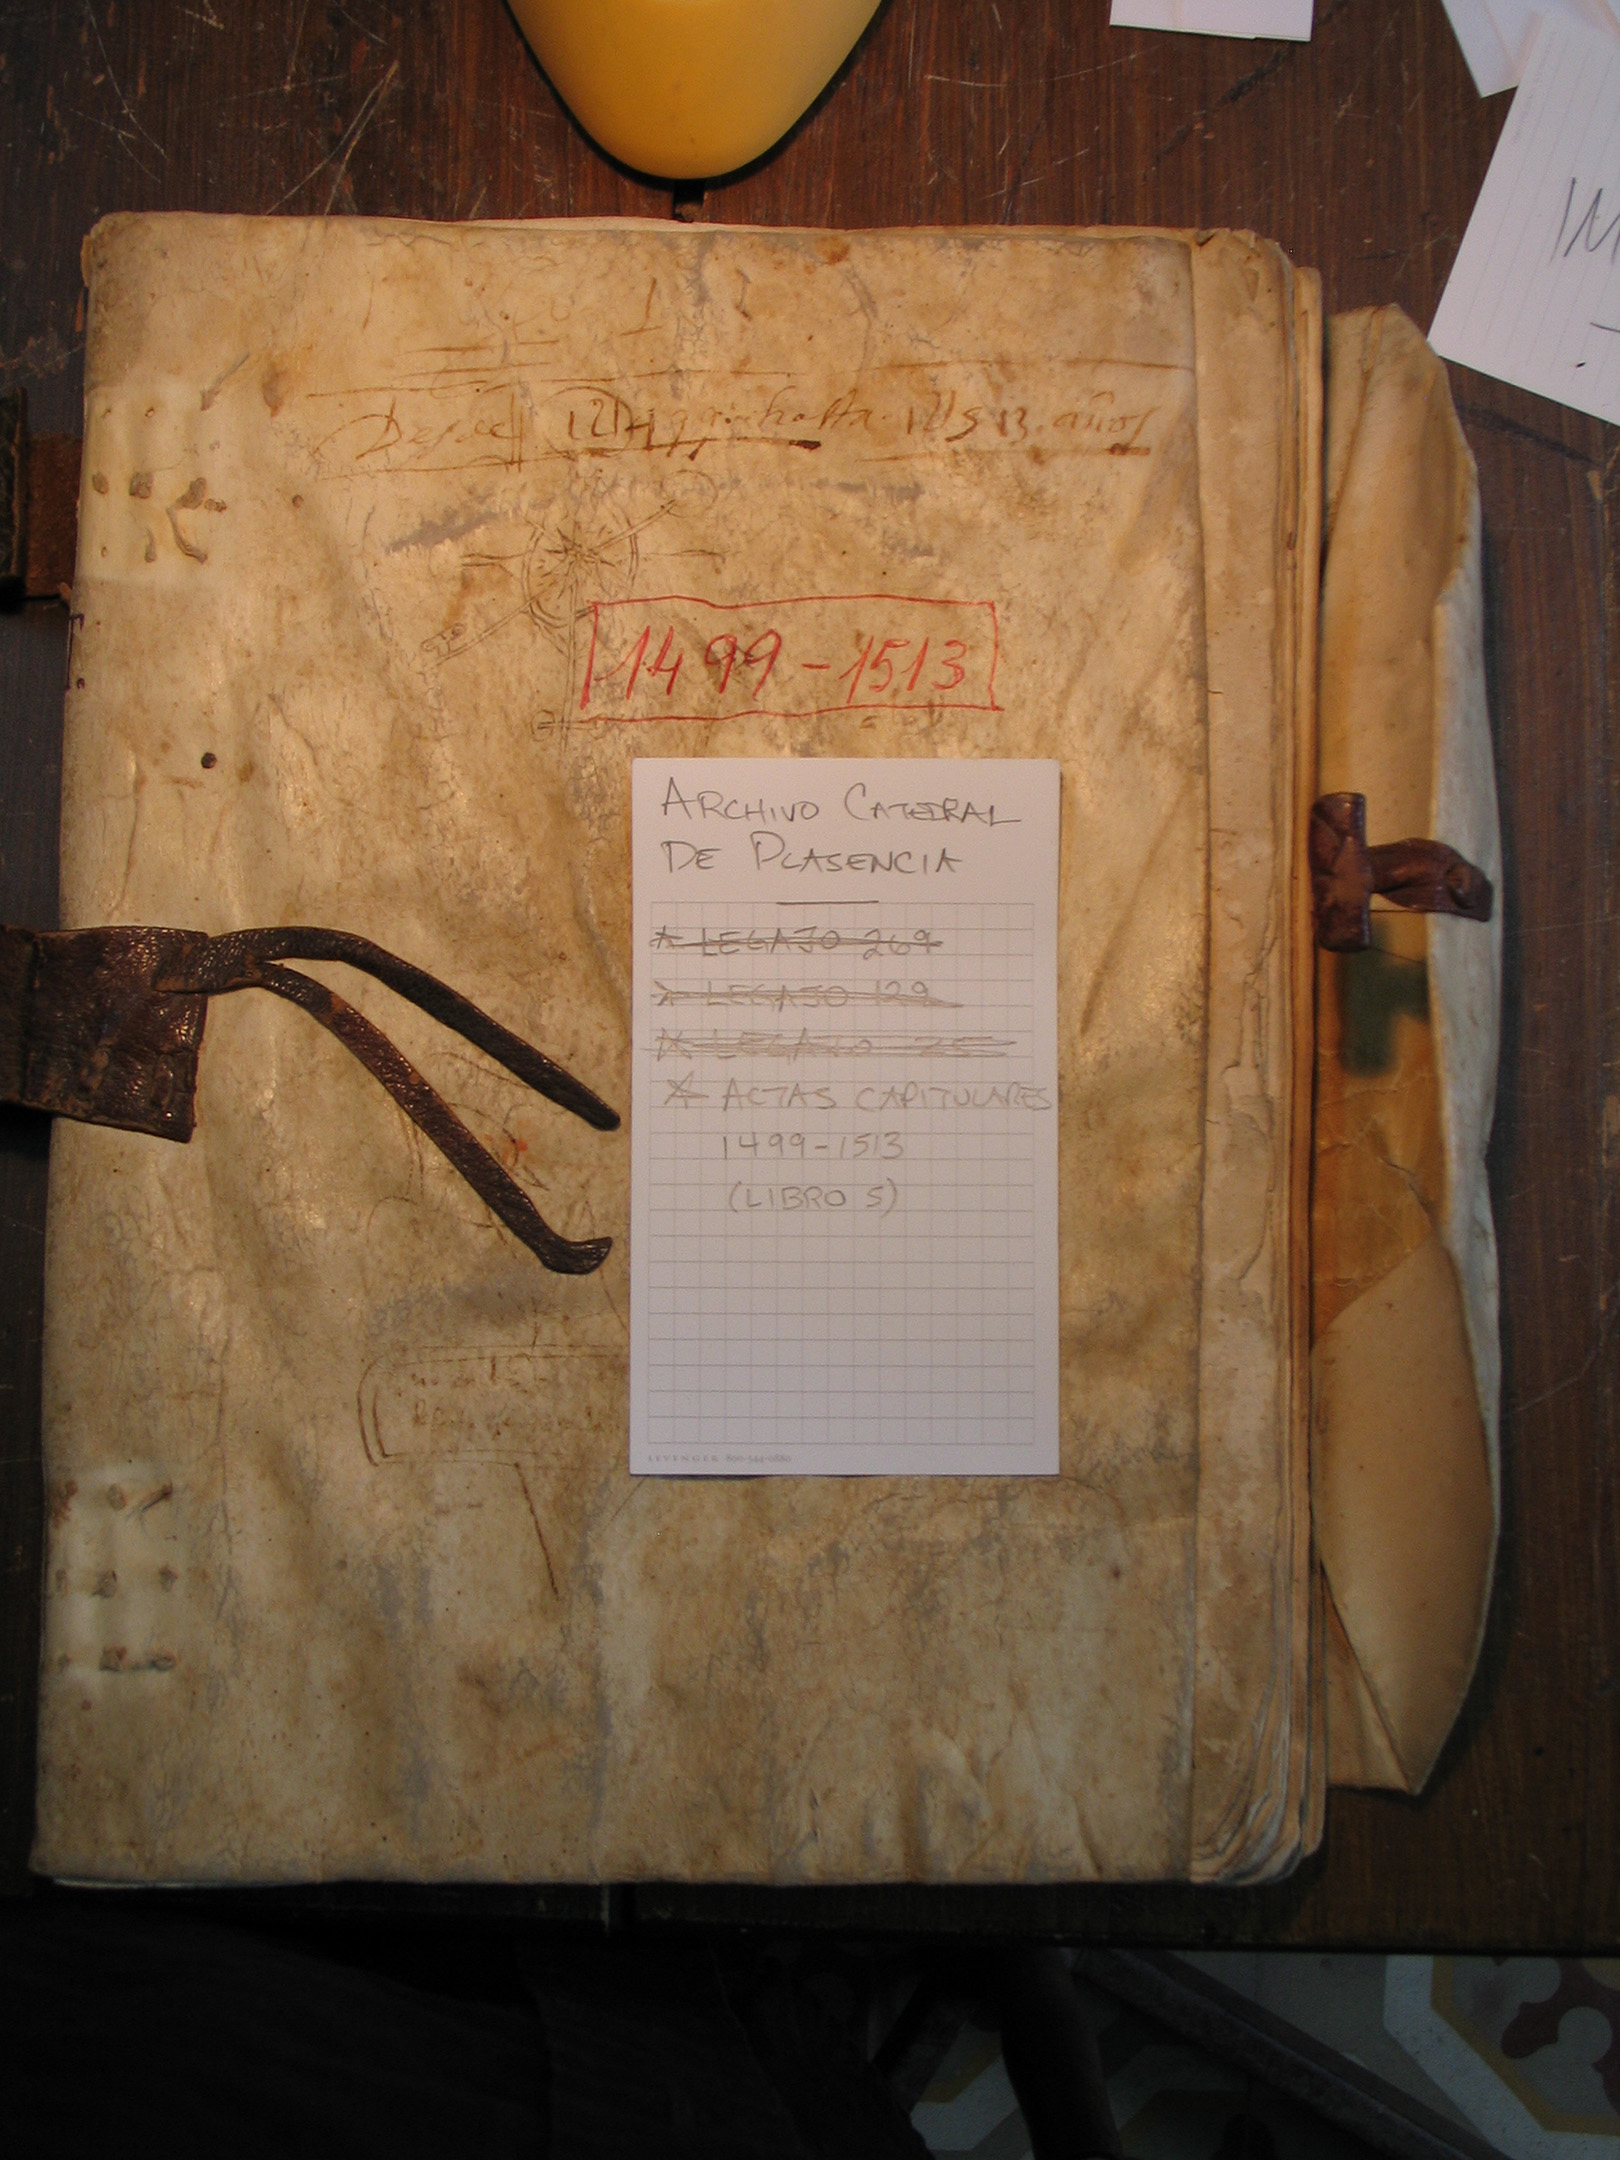 Desde 1499 hasta 1513 años
1499-1513
ARCHIVO CATEDRAL
DE PLASENCIA
* LEGAJO 269
* LEGAJO 129
* LEGAJO 25
* ACTAS CAPITULARES
1499-1513
(LIBRO 5)
LEVENGER 800-544-0880